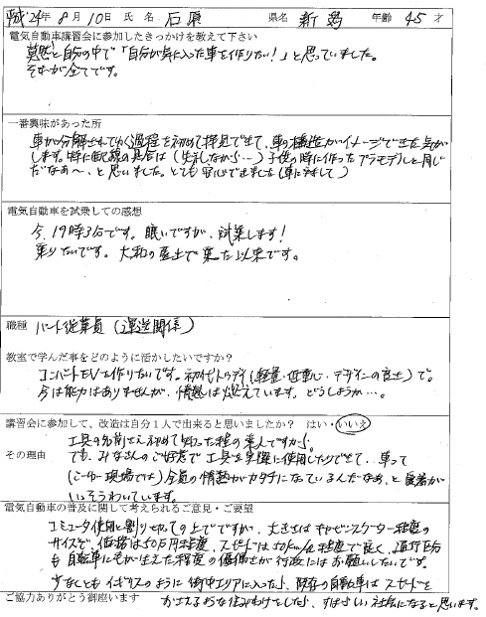 平成24年 8月10日 氏名 石原 県名 新潟 年齢 45才
電気自動車講習会に参加したきっかけを教えて下さい
漠然と自分の中で「自分が気に入った車を作りたい!」と思っていました。
それが全てです。
一番興味があった所
車が分解されてゆく過程を初めて拝見できて、車の構造がイメージできた気が
します。特に配線の具合は(失礼ながら…)子供の時に作ったプラモデルと同じ
だなあ〜、と思いました。とても安心できました(車に対して)
電気自動車を試乗しての感想
今、19時3分です。眠いですが、試乗します!
乗りたいです。大和の富士で乗た以来です。
職種 パート従業員(運送関係)
教室で学んだ事をどのように活かしたいですか?
コンバートEVを作りたいです。初代トゥデイ(軽量・低重心・デザインの良さ)で。
今は能力はありませんが、情熱は燃えています。どうしようか…。
講習会に参加して、改造は自分1人で出来ると思いましたか? はい・いいえ
工具の名前さえ初めて知った程の素人ですから。
その理由 でも、みなさんのご好意で工具を実際に使用したりできて、車って
(こーゆー現場では)全員の情熱がカタチになっているんだなあ、と
にそうわいています。
電気自動車の普及に関して考えられるご意見・ご要望
コミュータ使用と割り切っての上でですが、大きさはキャビンスクーター程度の
サイズで、価格は50万円程度、スピードは50km/h程度で良く、通行区分
も自転車に毛が生えた程度の優価さが行政にはお願いしたいです。
少なくともイギリスのように街中エリアに入ったら、既存の自動車はスピードを
おさえるような住みわけをしたら、すばらしい社会になると思います。
ご協力ありがとう御座います